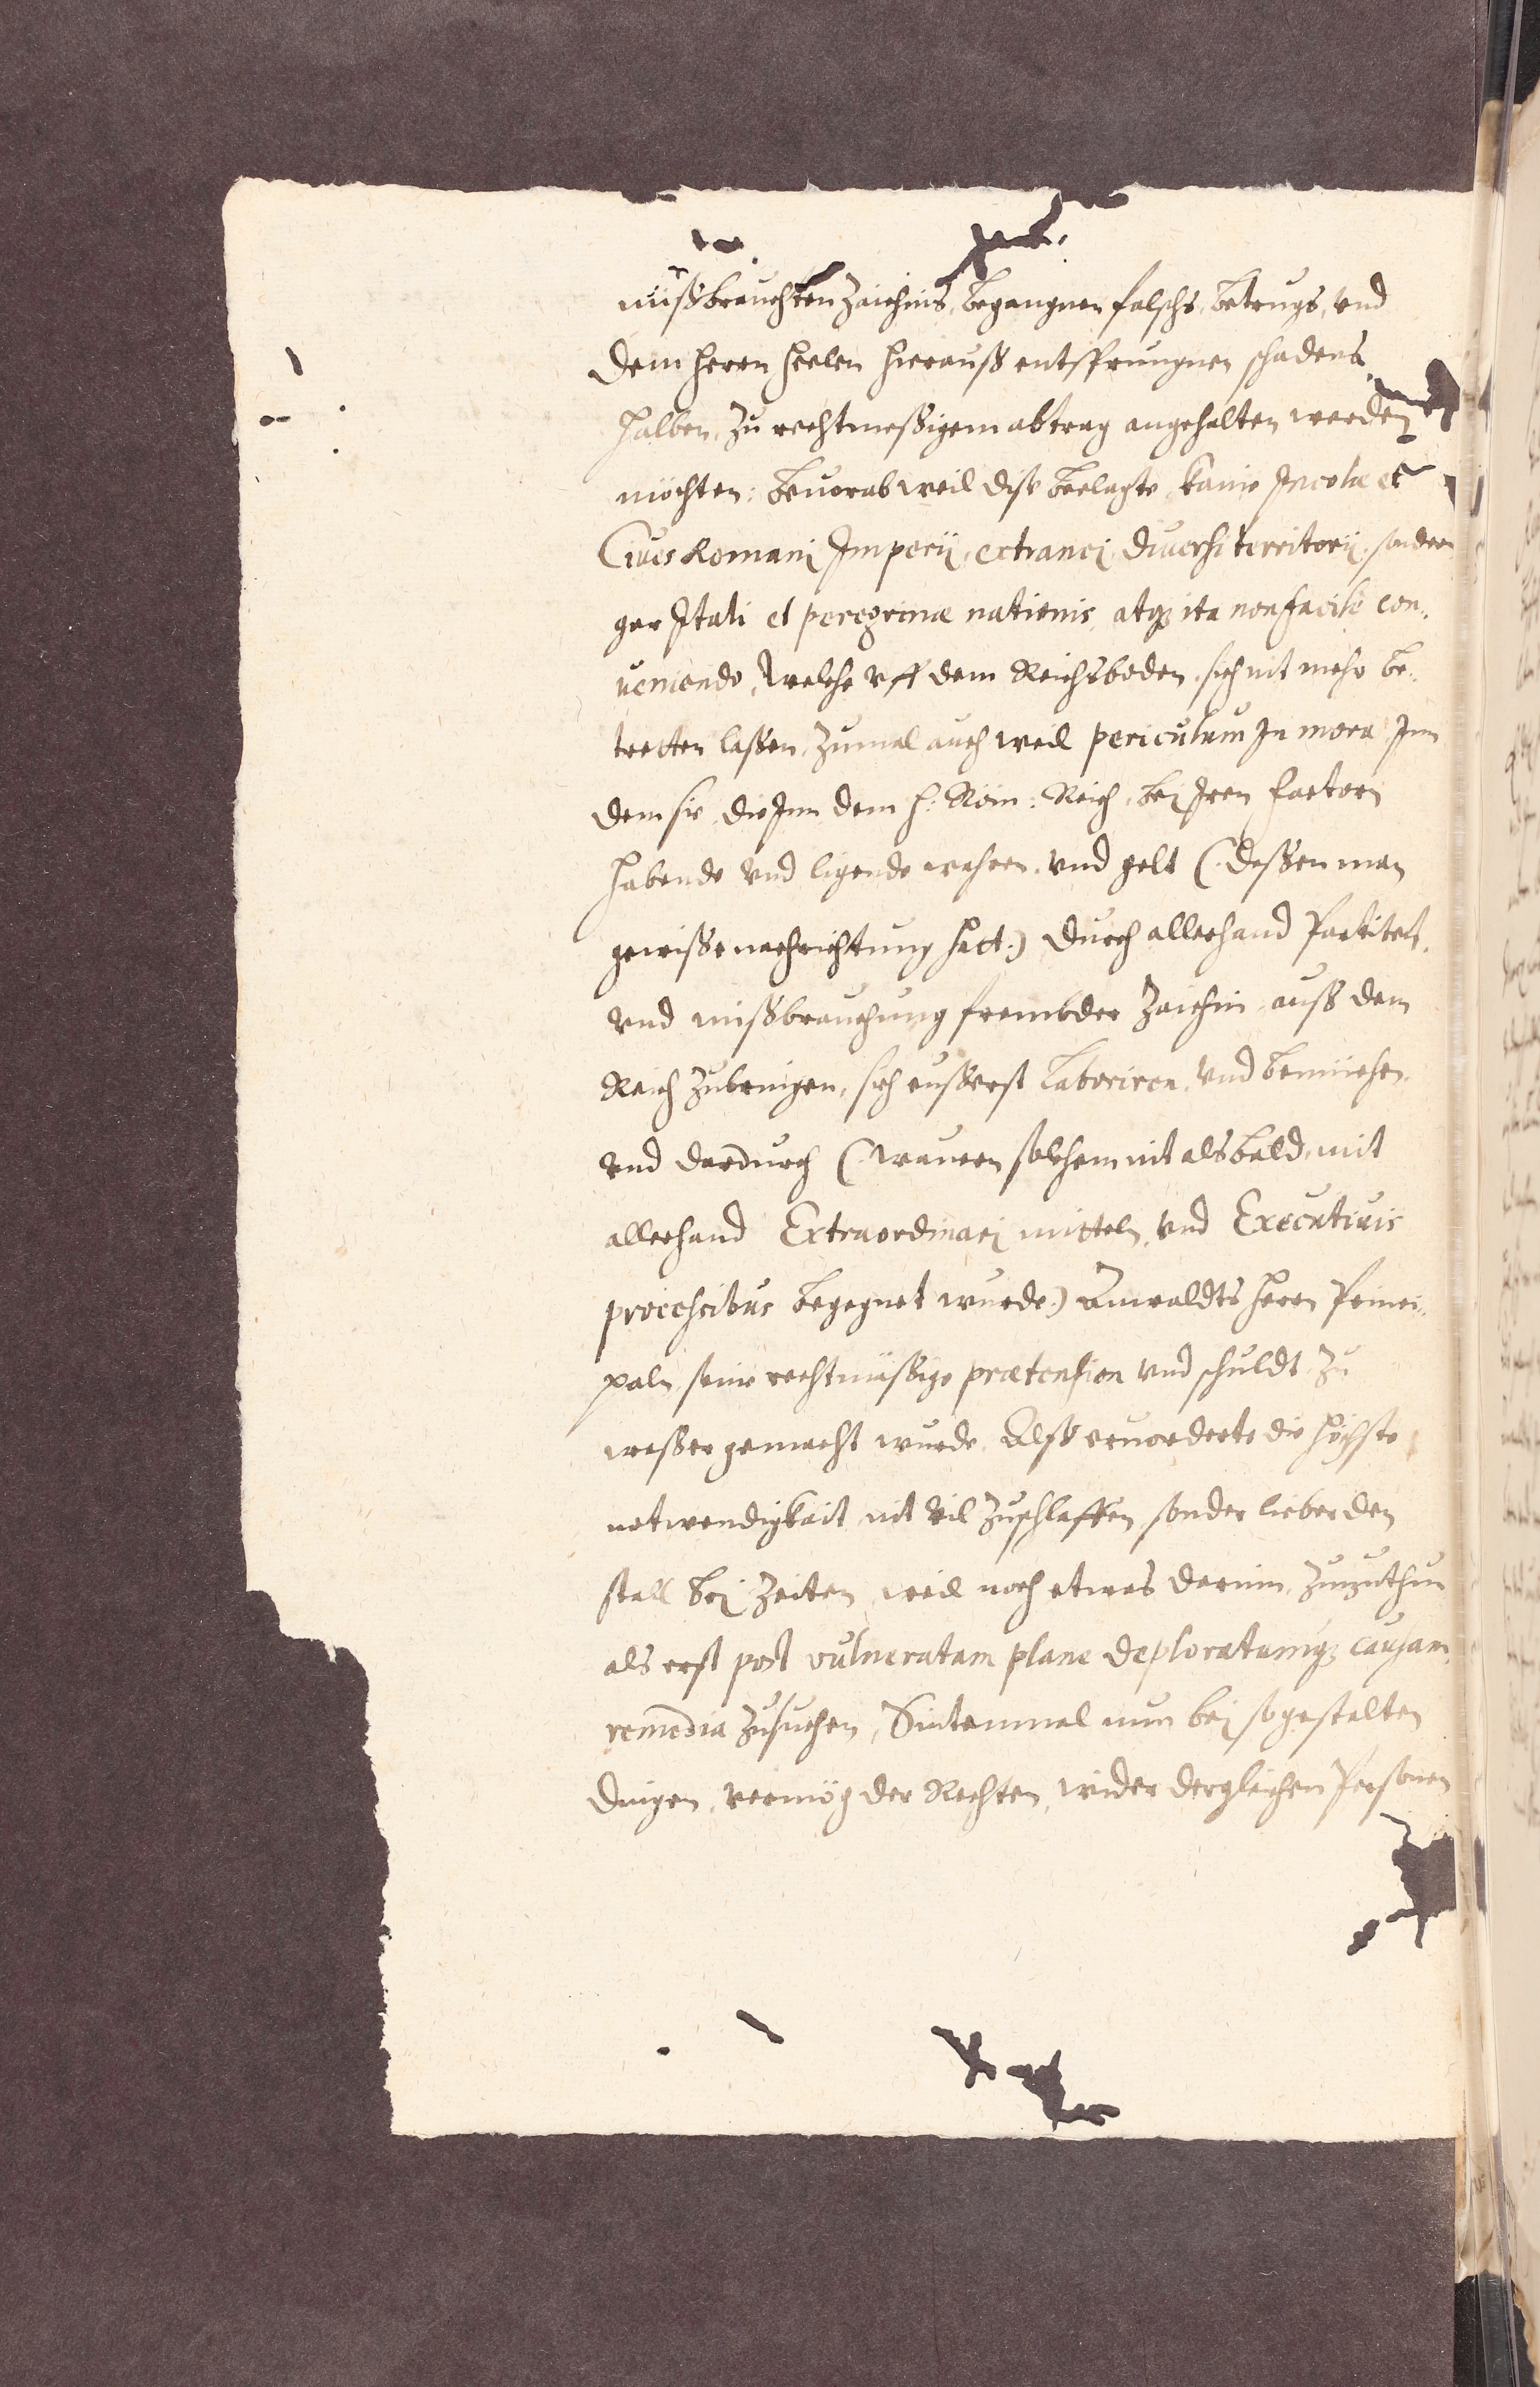 mißbrauchten Zaichins, begangnen falschs, betrugs, vnd
dem herrn Heelen hierauß entsprungnen schadens
halben, zu rechtmeßigem abtrag angehalten werden
möchten: beuorab weil dise beclagte, kaine Incolæ et
Ciues Romanj Imperij, extranej, diuersi territorij, sondern
gar Itali et peregrinæ nationis, atq; ita non facile con-
ueniendo, welche vff dem Reichsboden, sich nit mehr be-
tretten laßen, zumal auch weil periculum in mora, Inn
dem sie, die Inn dem H: Röm: Reich, bei Iren Factorn
habende vnd ligende wahren, vnd gelt (: deßen man
gewiße nachrichtung hatt:) durch allerhand Partiten,
vnd mißbrauchung frembder Zaichin, auß dem
Reich zubringen, sich eußerst laboriren, vnd bemüehen,
vnd dardurch (: wauern solchem nit alsbald, mit
allerhand Extraordinarj mitteln, vnd Executiuis
processibus begegnet wurde:) Anwaldts herrn Princi-
paln, seine rechtmäßige prætension vnd schuldt, zu
waßer gemacht wurde, Alß eruorderte die höchste
notwendigkait, nit vil zuschlaffen, sonder lieber den
stall bej Zeiten, weil noch etwas darinn, zuzuthun
als erst post vulneratam plane deploratamq; causam,
remedia zusuchen, Sintenmal nun bej sogestalten
dingen, vermög der Rechten, wider dergleichen Personen